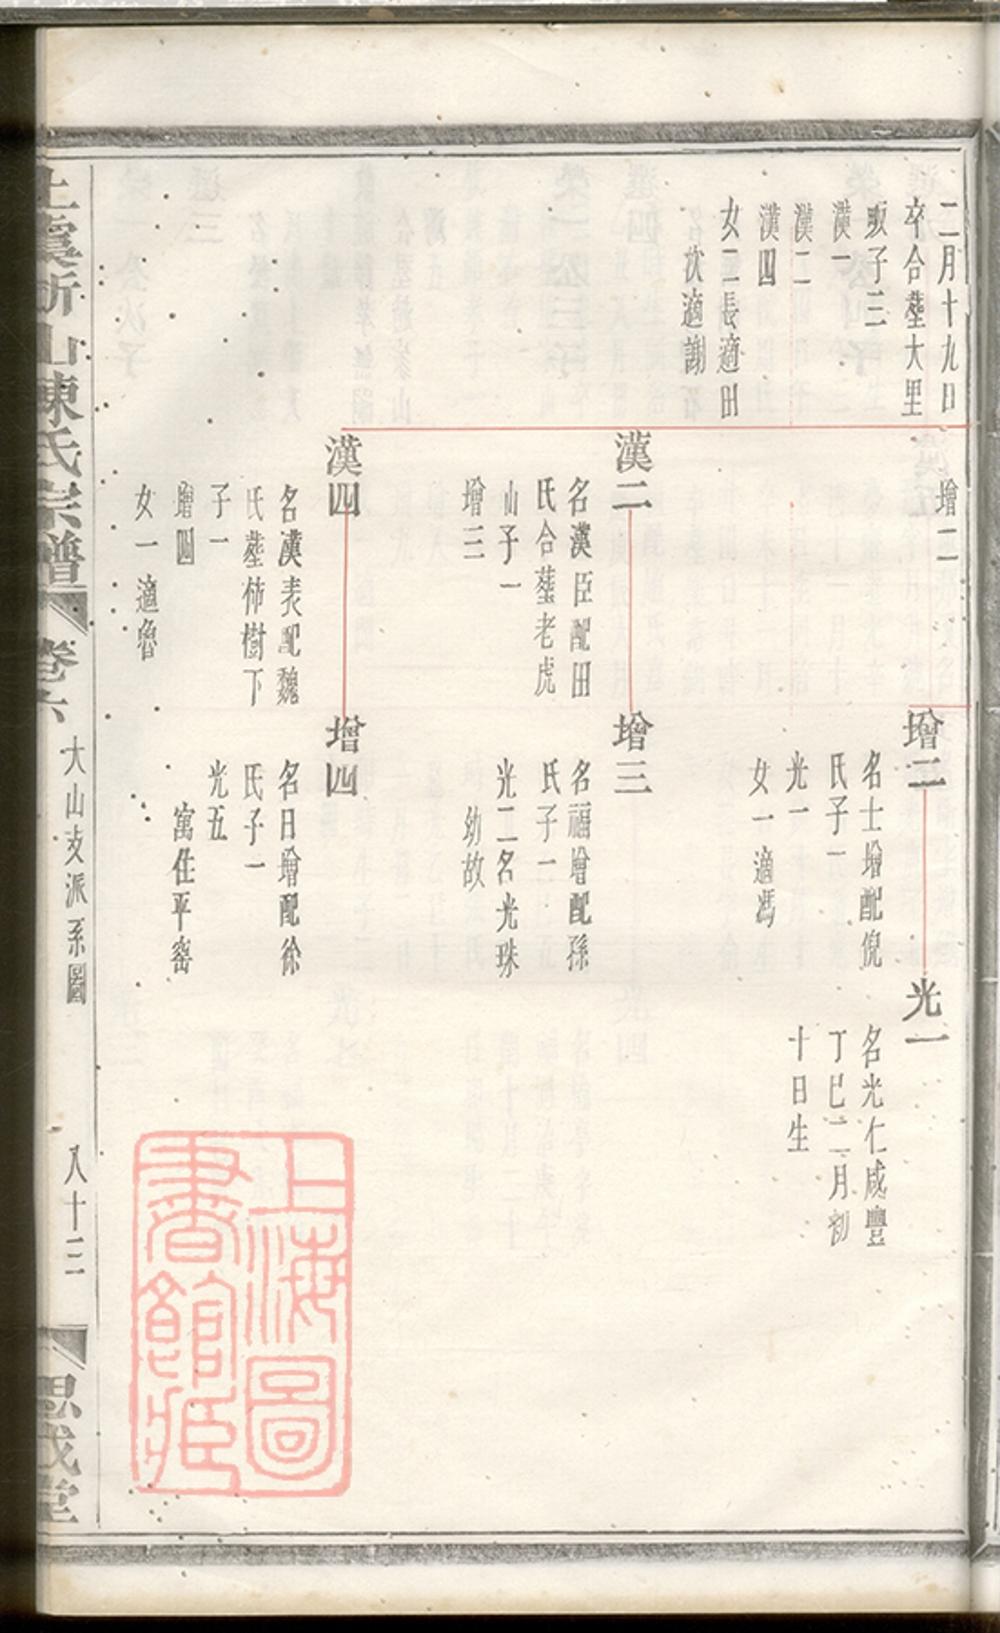 二月十九日
卒合塟大里
畈子三
漢一
漢二
漢四
女二長適田
次適謝
增二
漢二
名漢臣配田
氏合塟老虎
山子一
增三
漢四
名漢表配魏
氏塟柿樹下
子一
增四
女一適魯
增二
名士增配倪
氏子一
光一
女一適馮
增三
名福增配孫
氏子二
光二名光珠
幼故
增四
名日增配徐
氏子一
光五
寓住平窰
光一
名光仁咸豐
丁巳二月初
十日生
上虞新山陳氏宗譜
卷六
大山支派系圖
八十三
思成堂
上海圖
書館藏